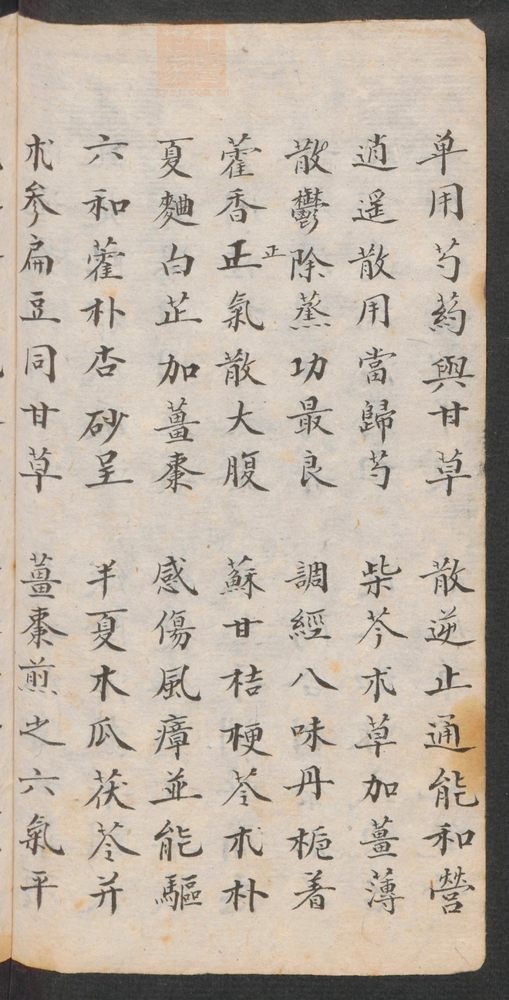 单用芍药與甘草 散逆止通能和營
逍遥散用當歸芍 柴芩朮草加薑薄
散鬱除蒸功最良 調經八味丹栀着
藿香正氣散大腹 蘇甘桔梗苓朮朴
正
夏麯白芷加薑棗 感傷風瘴並能驅
六和藿朴杏砂呈 半夏木瓜茯苓并
朮參扁豆同甘草 薑棗煎之六氣平